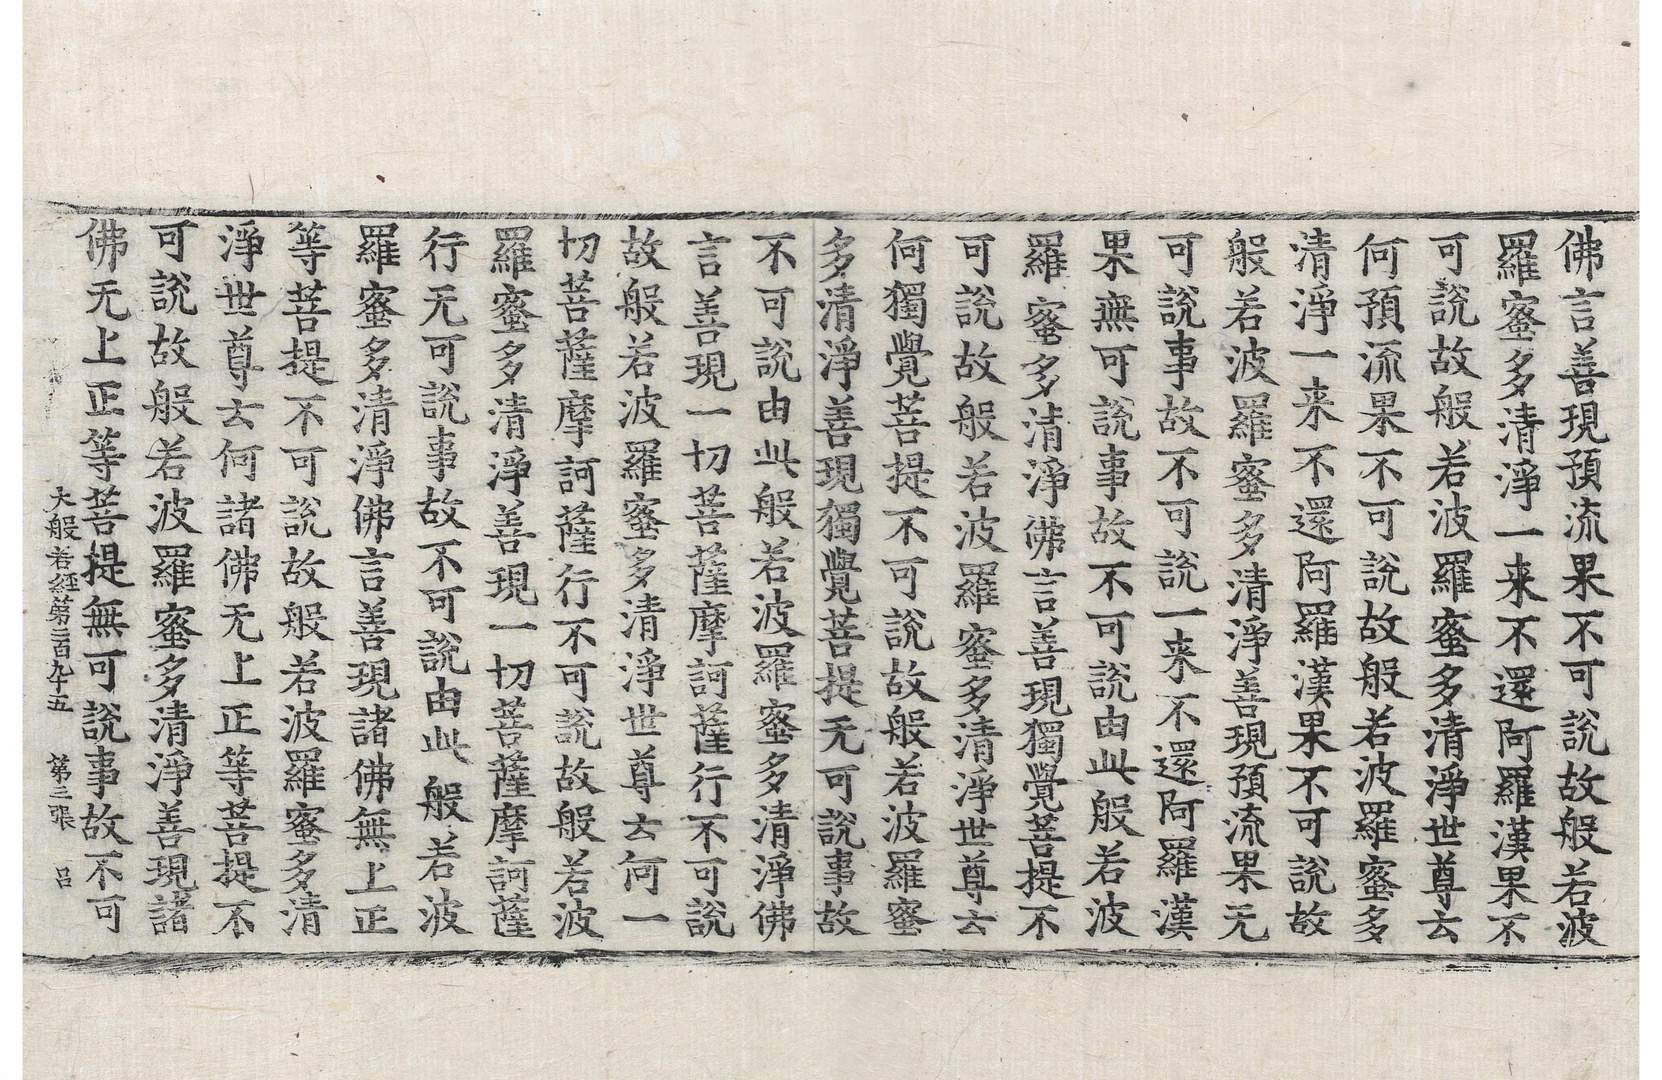 佛言善現預流果不可說故般若波
羅蜜多清淨一来不還阿羅漢果不
可說故般若波羅蜜多清淨世尊云
何預流果不可說故般若波羅蜜多
清淨一来不還阿羅漢果不可說故
般若波羅蜜多清淨善現預流果无
可說事故不可說一来不還阿羅漢
果無可說事故不可說由此般若波
羅蜜多清淨佛言善現獨覺菩提不
可說故般若波羅蜜多清淨世尊云
何獨覺菩提不可說故般若波羅蜜
多清淨善現獨覺菩提无可說事故
不可說由此般若波羅蜜多清淨佛
言善現一切菩薩摩訶薩行不可說
故般若波羅蜜多清淨世尊云何一
切菩薩摩訶薩行不可說故般若波
羅蜜多清淨善現一切菩薩摩訶薩
行无可說事故不可說由此般若波
羅蜜多清淨佛言善現諸佛無上正
等菩提不可說故般若波羅蜜多清
淨世尊云何諸佛无上正等菩提不
可說故般若波羅蜜多清淨善現諸
佛无上正等菩提無可說事故不可
大般若經第二百九十五 第三張 呂